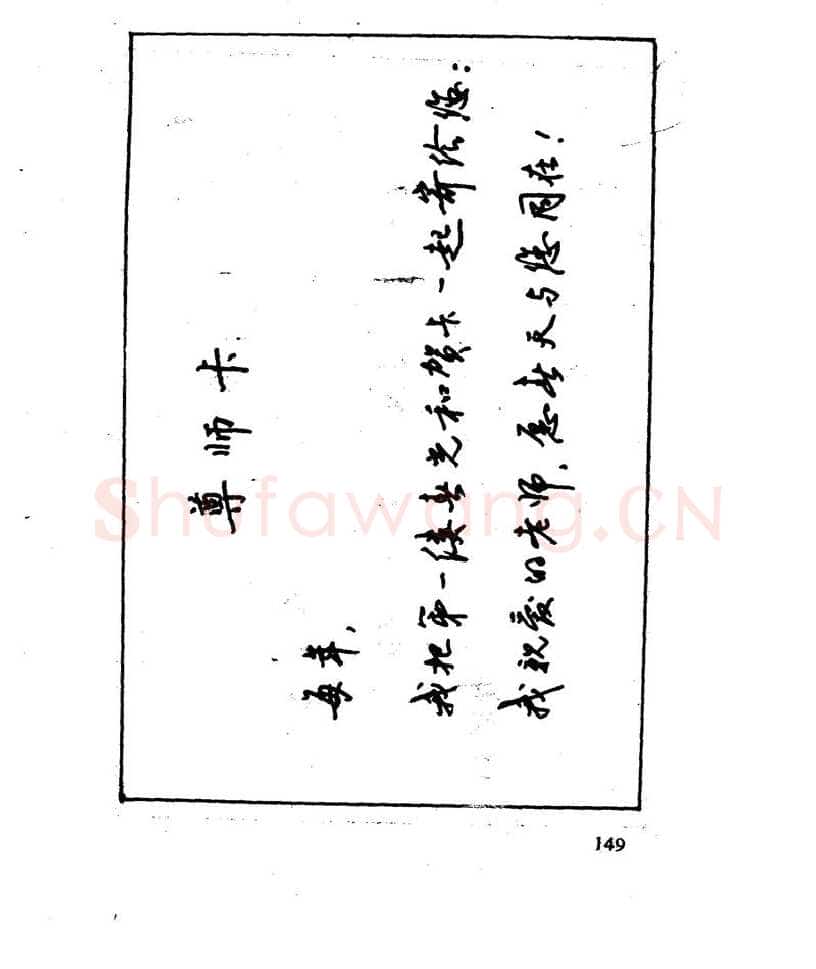 尊师卡
每年,
我把第一缕春光和贺卡一起寄给您:
我亲爱的老师,愿春天与您同在!
149
Shufawang.CN